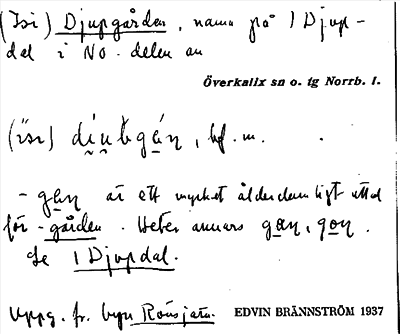 (Isi) Djupgården, namn på 1 Djup-
dal i NO. delen av
Överkalix sn o. tg Norrb. l.
(i̊si) di̯u̯bgán, bf. m.
- gan är ett mycket ålderdomligt uttal
för -gården. Heter annars gan, gon.
Se 1 Djupdal.
Uppg. fr. byn Rönsjärn.
EDVIN BRÄNNSTRÖM 1937